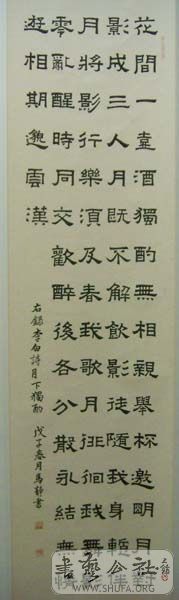 花間一壺酒獨酌無相親舉杯邀明月
影成三人月既不解飲影徒隨我身暫伴
月將影行樂須及春我歌月徘徊我
零亂醒時同交歡醉後各分散永結無
遊相期邈雲漢
右錄李白詩月下獨酌 戊子春月馬靜書
書藝公社
WWW.SHUFA.ORG